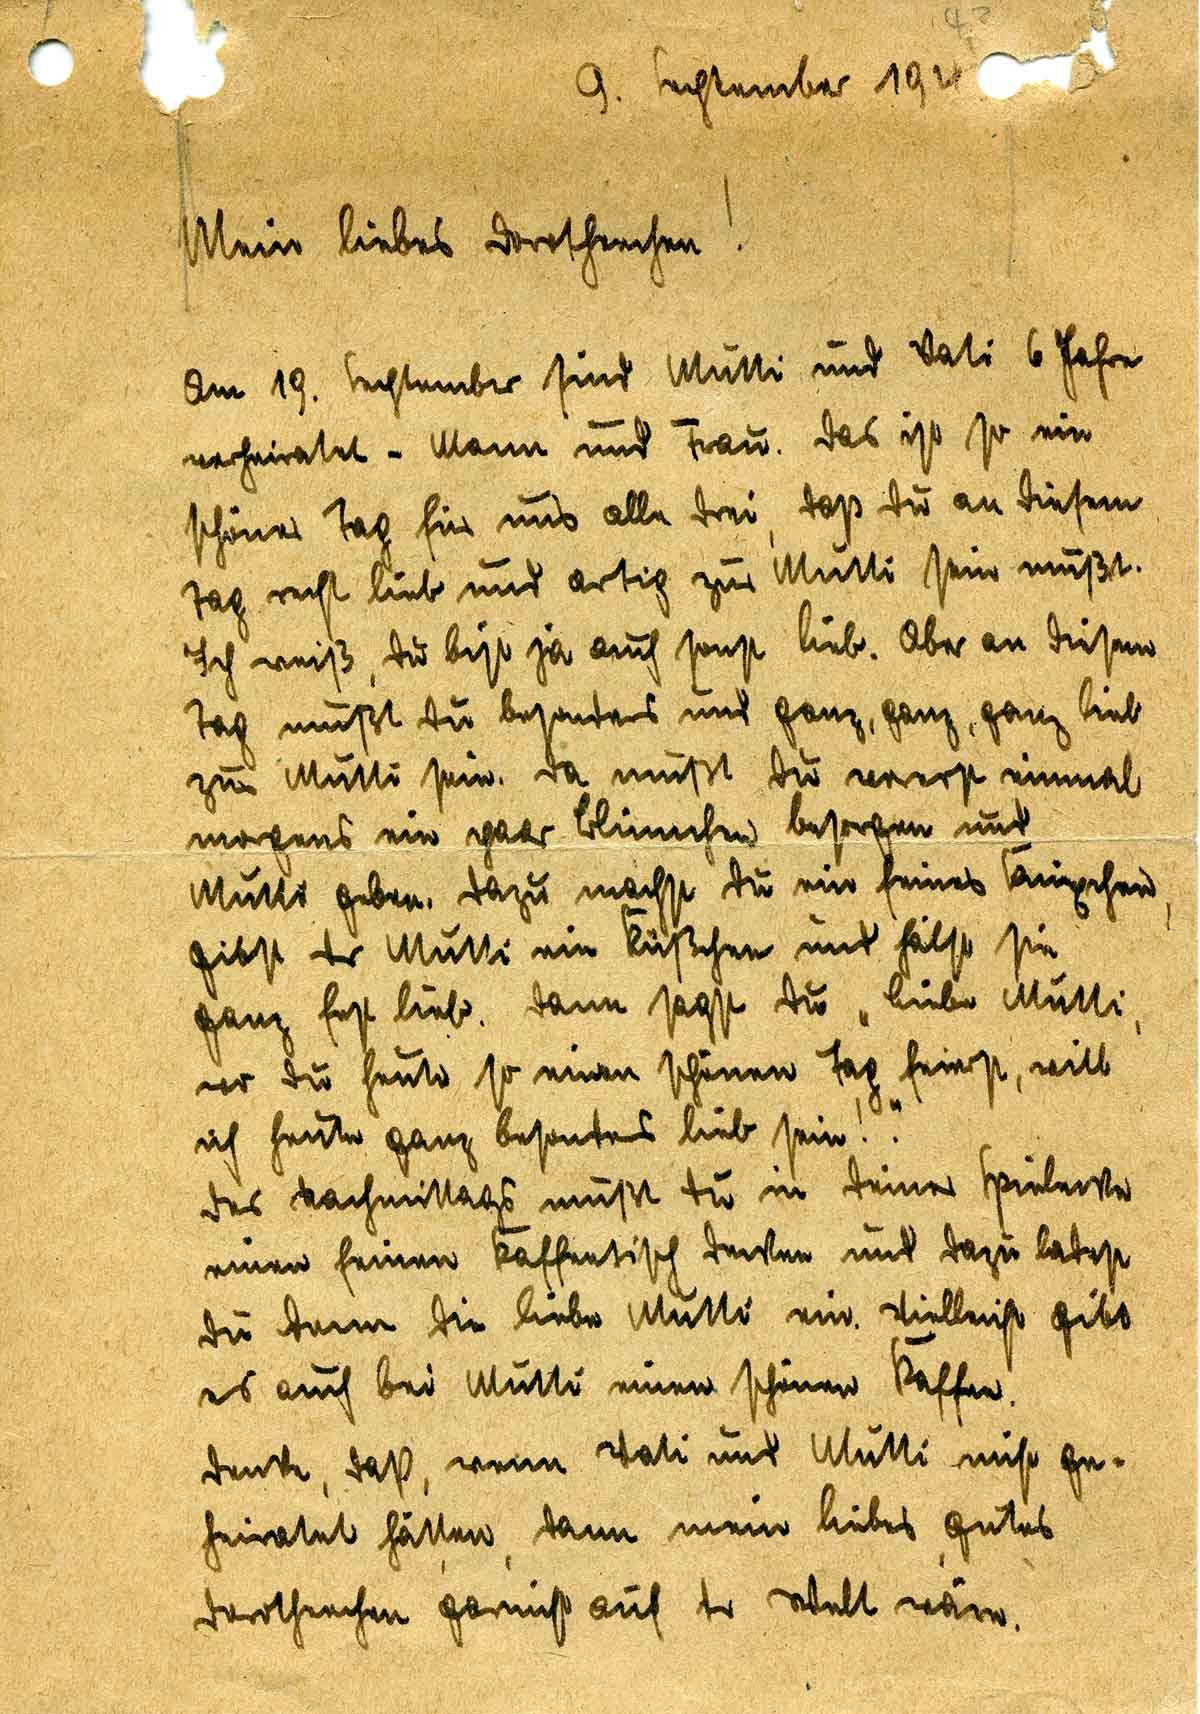 43
9. September 194
Mein liebes Dorotheechen!
Am 19. September sind Mutti und Vati 6 Jahre
verheiratet - Mann und Frau. Das ist so ein
schöner Tag für uns alle drei, daß Du an diesem
Tag recht lieb und artig zur Mutti sein mußt.
Ich weiß, Du bist ja auch sonst lieb. Aber an diesem
Tag mußt Du besonders und ganz, ganz, ganz lieb
zur Mutti sein. Da mußt Du vorerst einmal
morgens ein paar Blümchen besorgen und
Mutti geben. Dazu machst Du ein feines Knixchen,
gibst der Mutti ein Küßchen und hälst sie
ganz fest lieb. Dann sagst Du „liebe Mutti,
wo Du heute so einen schönen Tag feierst, will
ich heute ganz besonders lieb sein!".
Des Nachmittags mußt Du in Deiner Spielecke
einen feinen Kaffeetisch decken und dazu ladest
Du dann die liebe Mutti ein. Vielleicht gibt
es auch bei Mutti einen schönen Kaffee.
Denke, daß, wenn Vati und Mutti nicht ge-
heiratet hätten, dann mein liebes, gutes
Dorotheechen garnicht auf der Welt wäre.